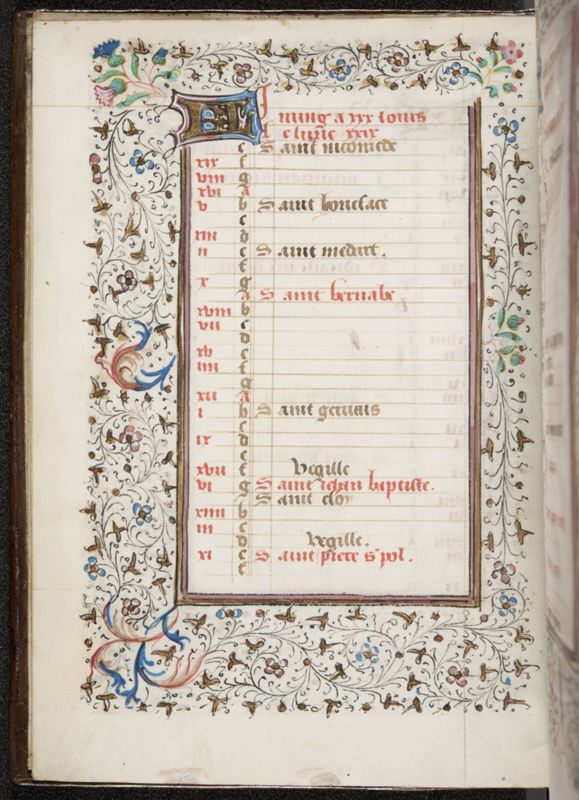 Juing a xxx iours
e lune xxix
e Saint nicomede
xix f
viii g
xvi A
v b Saint boniface
c
xiii d
ii e Saint medart.
f
x g
A Saint bernabe
xviii b
vii c
d
xv e
iiii f
g
xii A
i b Saint geruais
c
ix d
e
xvii f Vegille
vi g Saint iehan baptiste.
A Saint eloy
xiiii b
iii c
d Vegille.
xi e Saint piere s pol.
f